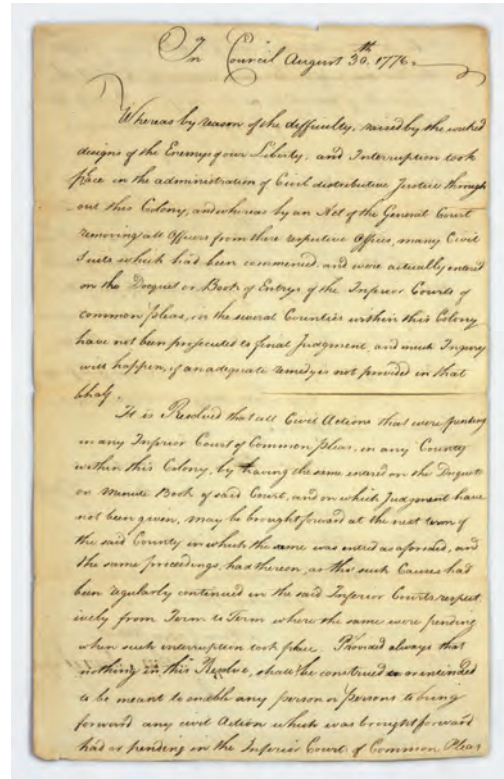 In Council August 30th. 1776.
Whereas by reason of the difficulty, raised by the wicked
designs of the Enemys of our Liberty, and Interruption took
place in the administration of Civil distributive Justice through
out this Colony, and whereas by an Act of the General Court
removing all Officers from there respective Offices, many Civil
Suits which had been commenced, and were actually entered
on the Docquet or Books of Entrys of the Inferior Courts of
common pleas, in the several Counties within this Colony
have not been prosecuted to final Judgment, and much Injury
will happen, if an adequate remedy is not provided in that
behalf.
It is Resolved that all Civil Actions that were pending
in any Inferior Court of Common pleas, in any County
within this Colony, by having the same entered on the Doquet
or Minute Book of said Court, and on which Judgment have
not been given, may be brought forward at the next term of
the said County in which the same was entred as aforesaid, and
the same proceedings, had thereon, as tho such Causes had
been regularly continued in the said Inferior Courts respect
ively from Term to Term where the same were pending
when such interruption took place. Provided always that
nothing in this Resolve, shall be construed or intended
to be meant to enable any person or persons to bring
forward any civil Action which was brought forward
had or pending in the Inferior Courts of Common Pleas